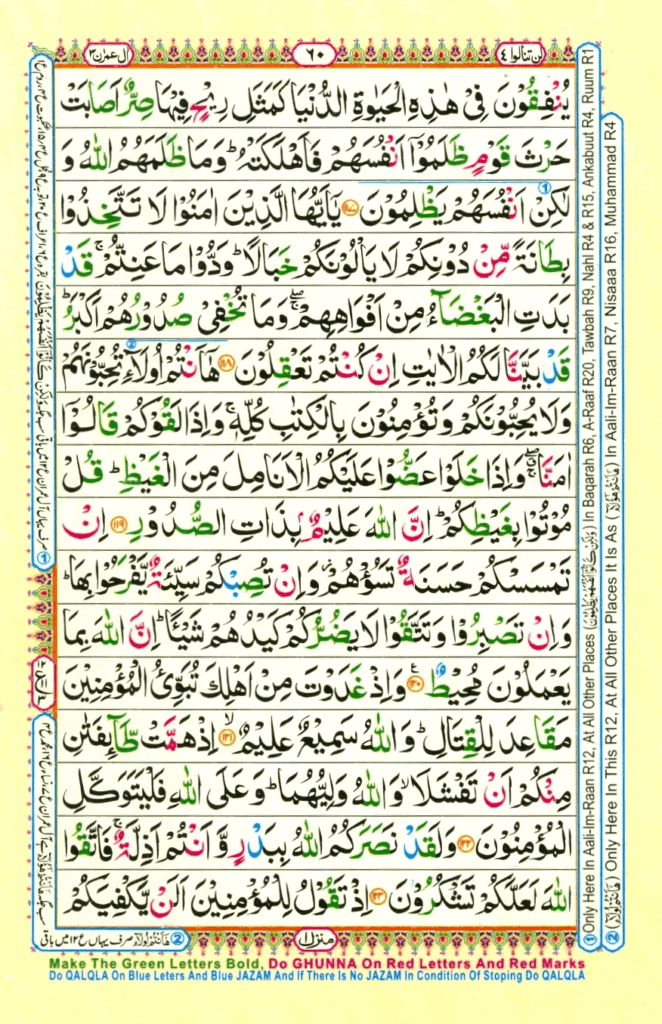 لن تنالوا ٤
٦٠
ال عمرٰن ٣
يُنْفِقُوْنَ فِىْ هٰذِهِ الْحَيٰوةِ الدُّنْيَا كَمَثَلِ رِيْحٍ فِيْهَا صِرٌّ اَصَابَتْ
حَرْثَ قَوْمٍ ظَلَمُوْۤا اَنْفُسَهُمْ فَاَهْلَكَتْهُ ؕ وَمَا ظَلَمَهُمُ اللّٰهُ وَ
لٰكِنْ اَنْفُسَهُمْ يَظْلِمُوْنَ ﴿۱۱۷﴾ يٰۤاَيُّهَا الَّذِيْنَ اٰمَنُوْا لَا تَتَّخِذُوْا
بِطَانَةً مِّنْ دُوْنِكُمْ لَا يَاْلُوْنَكُمْ خَبَالًا ؕ وَدُّوْا مَا عَنِتُّمْ ۚ قَدْ
بَدَتِ الْبَغْضَآءُ مِنْ اَفْوَاهِهِمْ ۖۚ وَمَا تُخْفِىْ صُدُوْرُهُمْ اَكْبَرُ ؕ
قَدْ بَيَّنَّا لَكُمُ الْاٰيٰتِ اِنْ كُنْتُمْ تَعْقِلُوْنَ ﴿۱۱۸﴾ هٰۤاَنْتُمْ اُولَآءِ تُحِبُّوْنَهُمْ
وَلَا يُحِبُّوْنَكُمْ وَتُؤْمِنُوْنَ بِالْكِتٰبِ كُلِّهٖ ۚ وَاِذَا لَقُوْكُمْ قَالُوْۤا
اٰمَنَّا ۖۚ وَاِذَا خَلَوْا عَضُّوْا عَلَيْكُمُ الْاَنَامِلَ مِنَ الْغَيْظِ ؕ قُلْ
مُوْتُوْا بِغَيْظِكُمْ ؕ اِنَّ اللّٰهَ عَلِيْمٌۢ بِذَاتِ الصُّدُوْرِ ﴿۱۱۹﴾ اِنْ
تَمْسَسْكُمْ حَسَنَةٌ تَسُؤْهُمْ ۫ وَاِنْ تُصِبْكُمْ سَيِّئَةٌ يَّفْرَحُوْا بِهَا ؕ
وَاِنْ تَصْبِرُوْا وَتَتَّقُوْا لَا يَضُرُّكُمْ كَيْدُهُمْ شَيْـًٔا ؕ اِنَّ اللّٰهَ بِمَا
يَعْمَلُوْنَ مُحِيْطٌ ﴿۱۲۰﴾ وَاِذْ غَدَوْتَ مِنْ اَهْلِكَ تُبَوِّئُ الْمُؤْمِنِيْنَ
مَقَاعِدَ لِلْقِتَالِ ؕ وَاللّٰهُ سَمِيْعٌ عَلِيْمٌ ﴿۱۲۱﴾ اِذْ هَمَّتْ طَّآئِفَتٰنِ
مِنْكُمْ اَنْ تَفْشَلَا ۙ وَاللّٰهُ وَلِيُّهُمَا ؕ وَعَلَى اللّٰهِ فَلْيَتَوَكَّلِ
الْمُؤْمِنُوْنَ ﴿۱۲۲﴾ وَلَقَدْ نَصَرَكُمُ اللّٰهُ بِبَدْرٍ وَّاَنْتُمْ اَذِلَّةٌ ۚ فَاتَّقُوا
اللّٰهَ لَعَلَّكُمْ تَشْكُرُوْنَ ﴿۱۲۳﴾ اِذْ تَقُوْلُ لِلْمُؤْمِنِيْنَ اَلَنْ يَّكْفِيَكُمْ
منزل ١
② هٰۤاَنْتُمْ اُولَآءِ صرف یہاں ع ۱۲ میں باقی
① Only Here In Aali-Im-Raan R12, At All Other Places In Baqarah R6, A-Raaf R20, Tawbah R9, Nahl R4 & R15, Ankabuut R4, Ruum R1
② (هٰۤاَنْتُمْ اُولَآءِ) Only Here In This R12, At All Other Places It Is As (هٰۤاَنْتُمْ هٰۤؤُلَآءِ) In Aali-Im-Raan R7, Nisaaa R16, Muhammad R4
Make The Green Letters Bold, Do GHUNNA On Red Letters And Red Marks
Do QALQLA On Blue Leters And Blue JAZAM And If There Is No JAZAM In Condition Of Stoping Do QALQLA